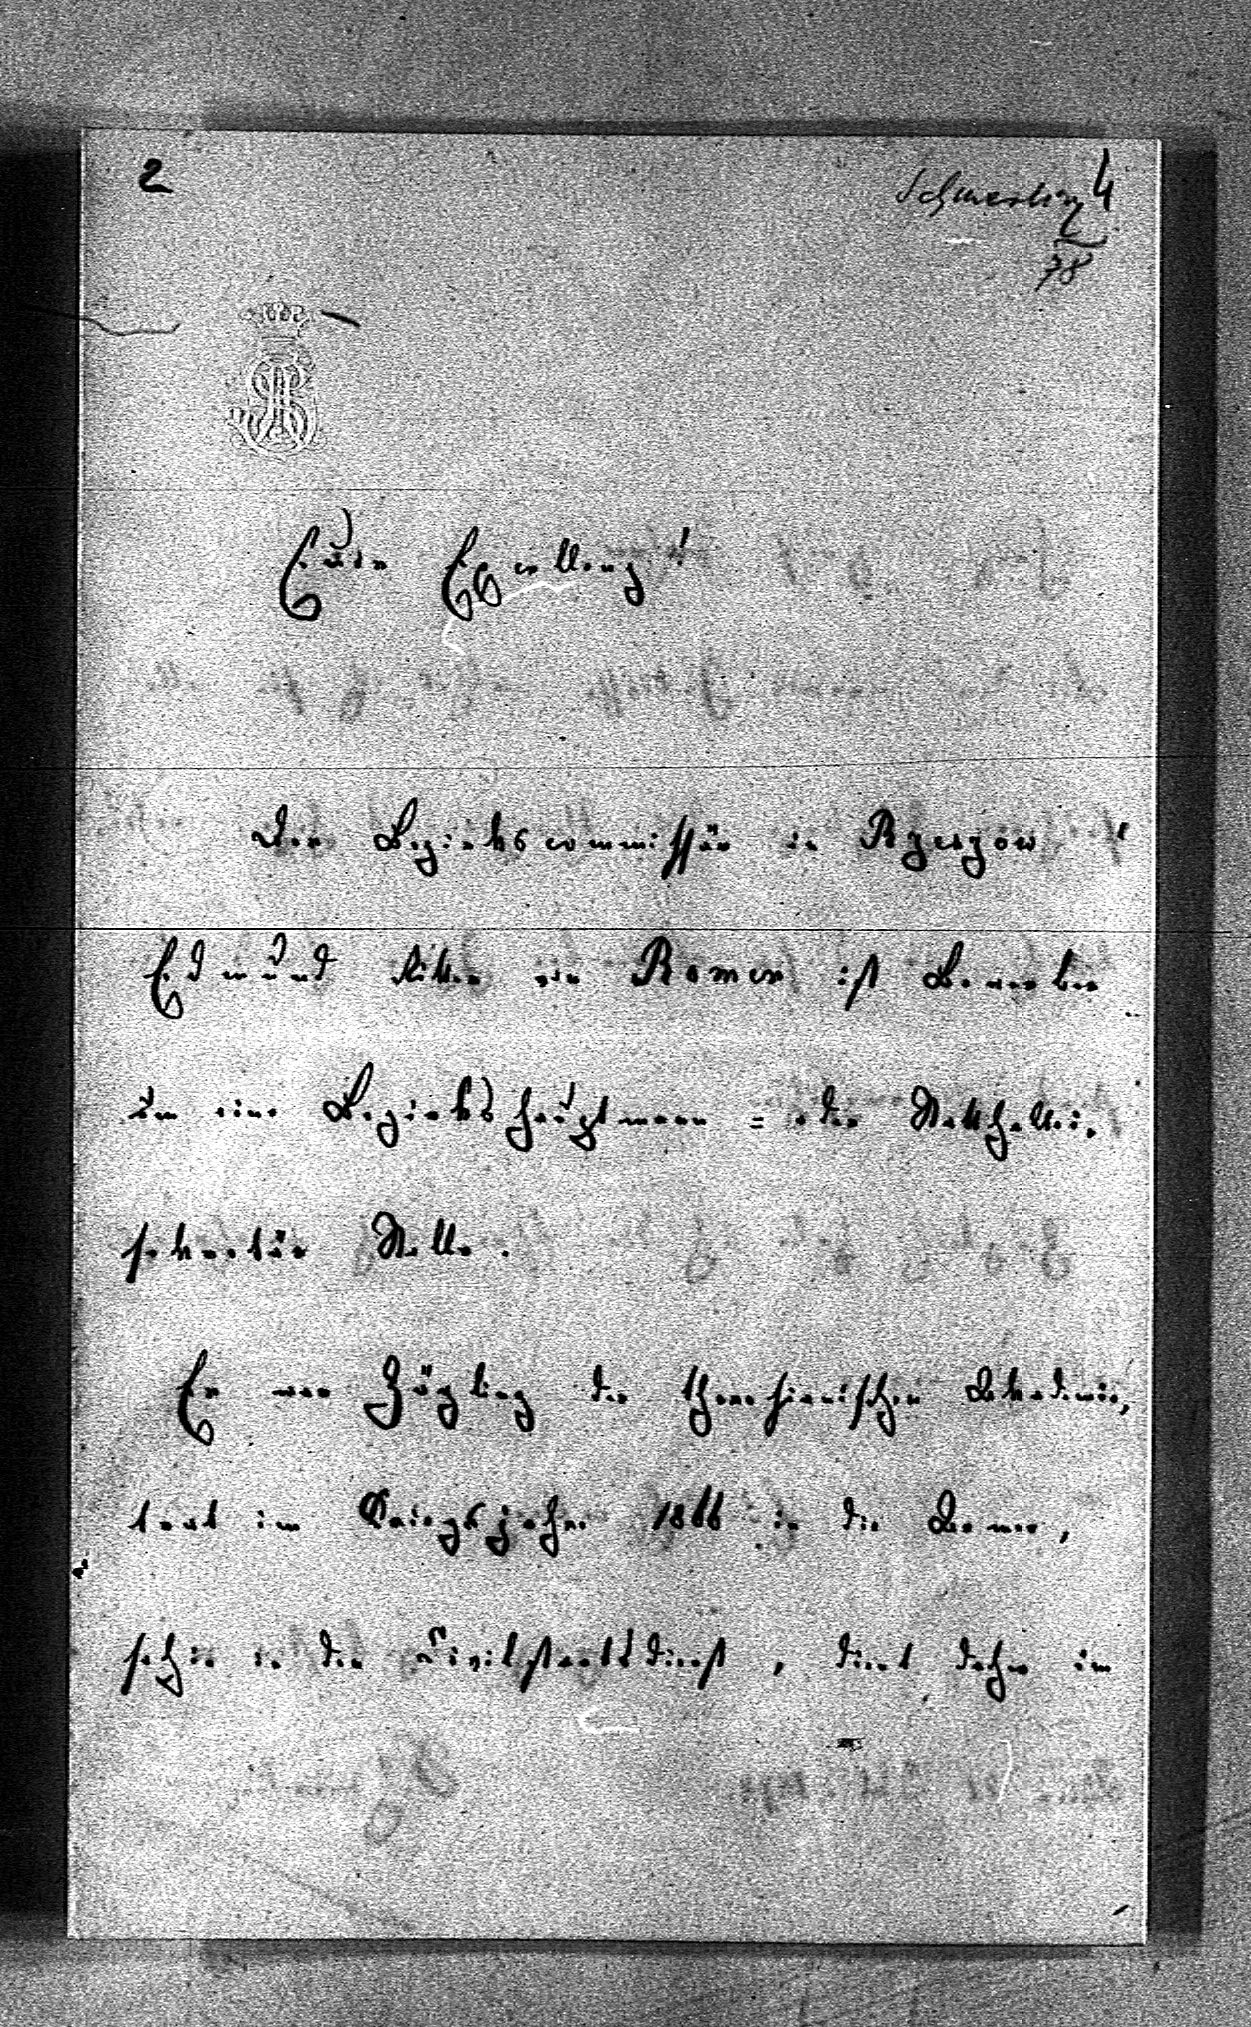 2
Schmerling 4
78
Eure Excellenz!
Der Bezirkscommissär in Rzeszow
Edmund Ritter von Romer ist Bewerber
um eine Bezirkshauptmann = oder Statthalterei-
sekretär Stelle.
Er war Zögling der theresianischen Academie,
trat im Kriegsjahre 1866 in die Armee,
sohin in den Civilstaatsdienst, dient daher im